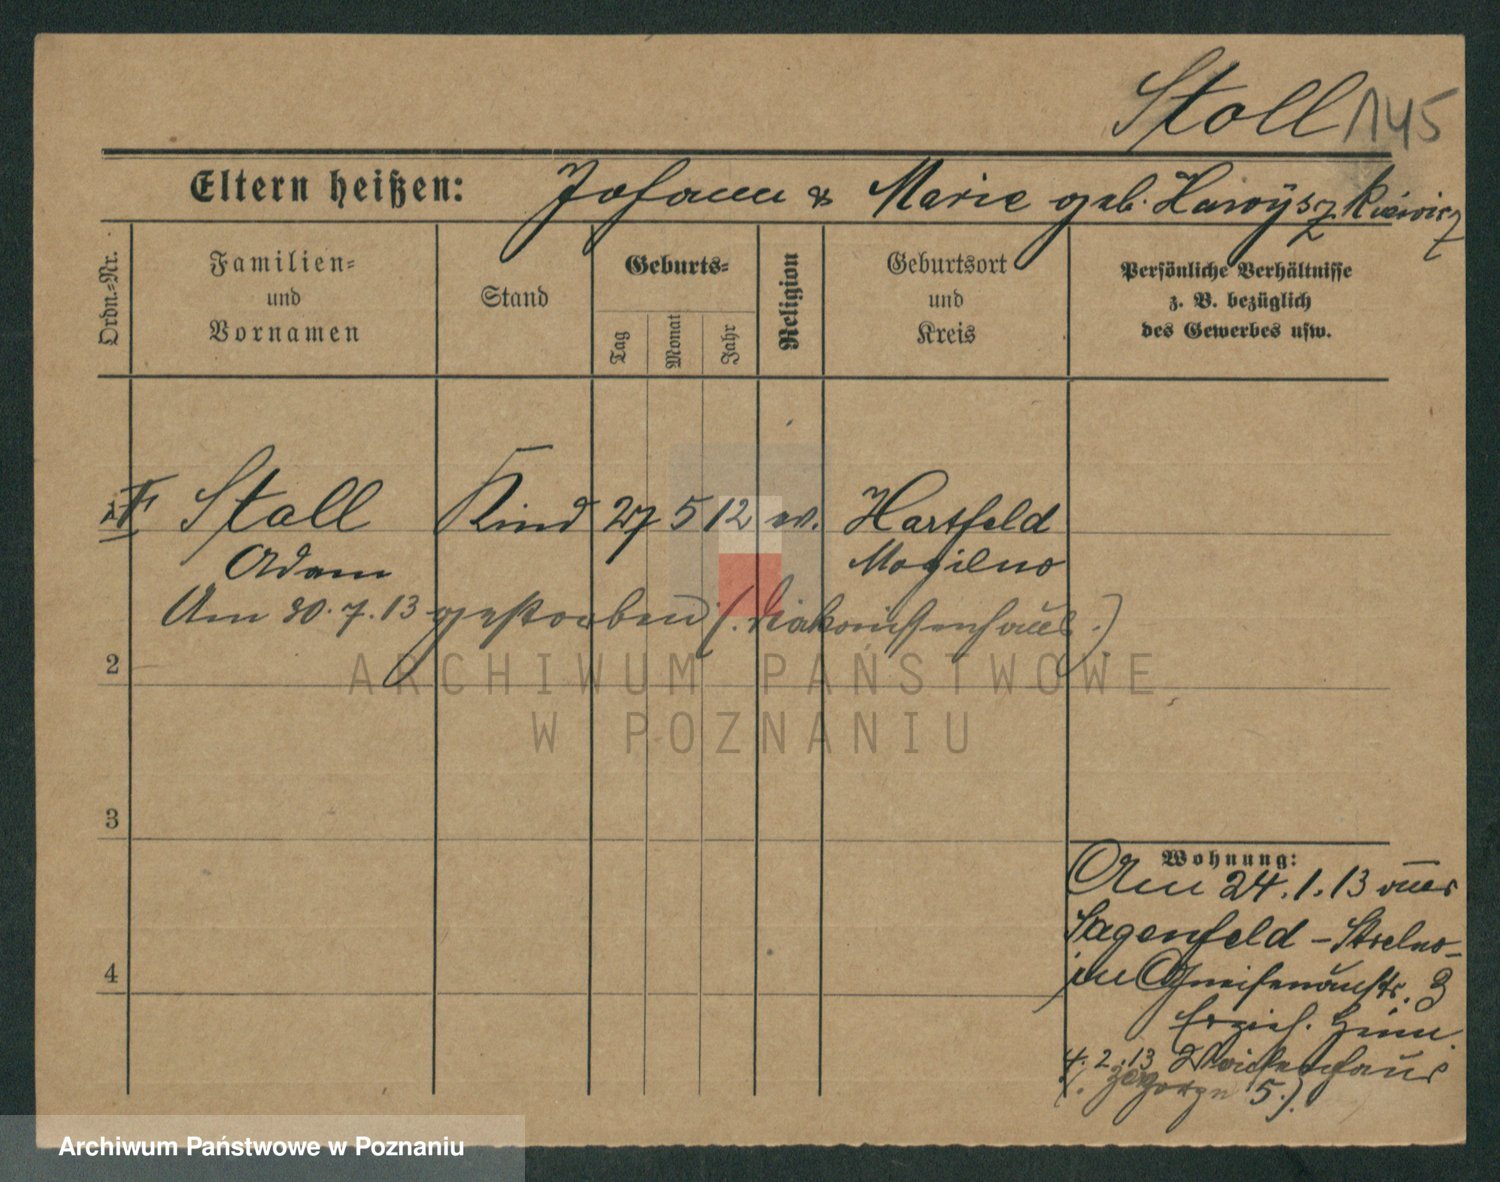 Stoll 145
Eltern heißen: Johann & Marie geb. Hawryszkiewicz
Ordn.-Nr.
Familien- und Vornamen
Stand
Geburts-
Tag
Monat
Jahr
Religion
Geburtsort und Kreis
Persönliche Verhältnisse
z. B. bezüglich
des Gewerbes usw.
Stoll Kind 27 5 12 ev. Hartfeld
Adam Mogilno
Am 30.7.13 gestorben (Diakonissenhaus.)
2
ARCHIWUM PAŃSTWOWE
W POZNANIU
3
4
Wohnung:
Am 24.1.13 aus
Sagenfeld - Strelno -
in Gneisenaustr. 3
Erzieh. Heim.
4.2.13 Waisenhaus
5.)
Archiwum Państwowe w Poznaniu